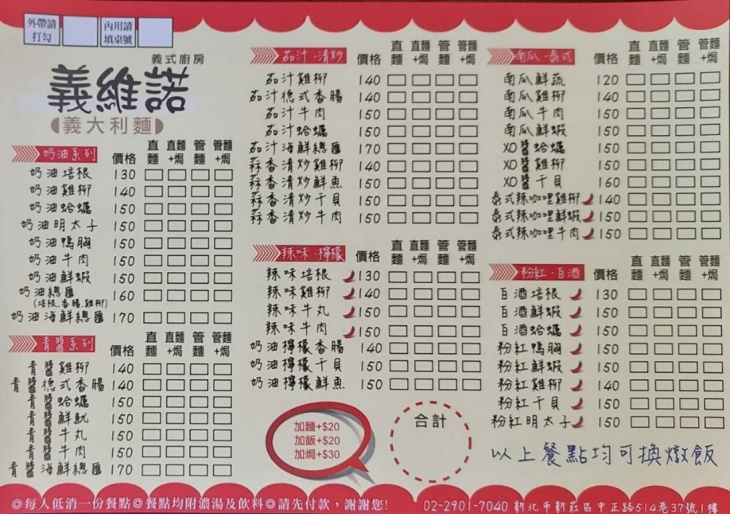 外帶請
打勾
內用請
填桌號
義式廚房
義維諾
義大利麵
奶油系列 價格 直麵 直麵+焗 管麵 管麵+焗
奶油培根 130
奶油雞柳 150
奶油蛤蠣 150
奶油明太子 150
奶油鴨胸 150
奶油牛肉 150
奶油鮮蝦 150
奶油總匯 160
(培根、香腸、雞柳)
奶油海鮮總匯 170
青醬系列 價格 直麵 直麵+焗 管麵 管麵+焗
青醬雞柳 140
青醬德式香腸 140
青醬蛤蠣 150
青醬鮮魷 150
青醬牛丸 150
青醬牛肉 150
青醬海鮮總匯 170
茄汁·清炒 價格 直麵 直麵+焗 管麵 管麵+焗
茄汁雞柳 140
茄汁德式香腸 140
茄汁牛肉 150
茄汁蛤蠣 150
茄汁海鮮總匯 170
蒜香清炒雞柳 140
蒜香清炒鮮魚 150
蒜香清炒干貝 150
蒜香清炒牛肉 150
辣味·檸檬 價格 直麵 直麵+焗 管麵 管麵+焗
辣味培根 130
辣味雞柳 140
辣味牛丸 150
辣味牛肉 150
奶油檸檬香腸 140
奶油檸檬干貝 150
奶油檸檬鮮魚 150
加麵+$20
加飯+$20
加焗+$30
合計
南瓜·泰式 價格 直麵 直麵+焗 管麵 管麵+焗
南瓜鮮蔬 120
南瓜雞柳 140
南瓜牛肉 150
南瓜鮮蝦 150
XO醬蛤蠣 150
XO醬雞柳 150
XO醬干貝 160
泰式辣咖哩雞柳 140
泰式辣咖哩鮮蝦 150
泰式辣咖哩牛肉 150
粉紅·白酒 價格 直麵 直麵+焗 管麵 管麵+焗
白酒培根 130
白酒鮮蝦 150
白酒蛤蠣 150
粉紅鴨胸 150
粉紅鮮蝦 150
粉紅雞柳 140
粉紅干貝 150
粉紅明太子 150
以上餐點均可換燉飯
◎每人低消一份餐點◎餐點均附濃湯及飲料◎請先付款，謝謝您!
02-2901-7040 新北市新莊區中正路514巷37號1樓